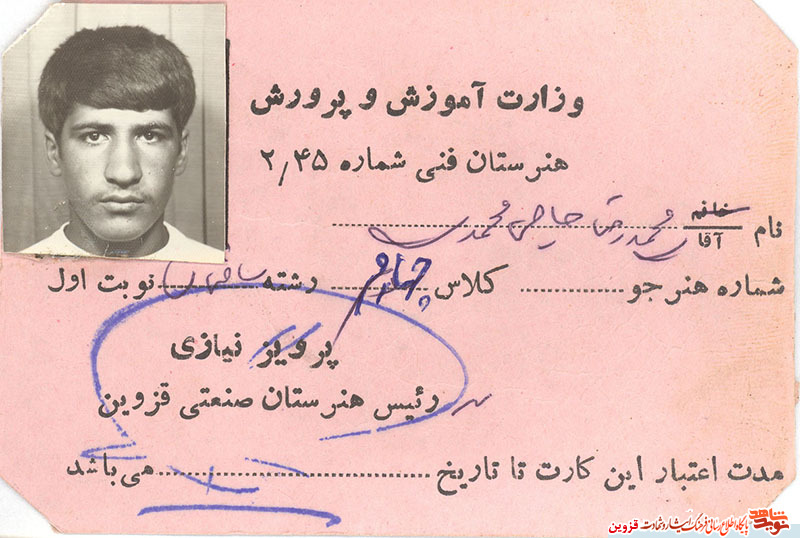 وزارت آموزش و پرورش
هنرستان فنی شماره ۲٫۴۵
نام خانم آقا محمدرضا حاجی محمدی
شماره هنرجو .......... کلاس چهارم رشته ساختمان نوبت اول
پرویز نیازی
رئیس هنرستان صنعتی قزوین
مدت اعتبار این کارت تا تاریخ .......... می باشد
نوید شاهد پایگاه اطلاع رسانی فرهنگ ایثار و شهادت قزوین